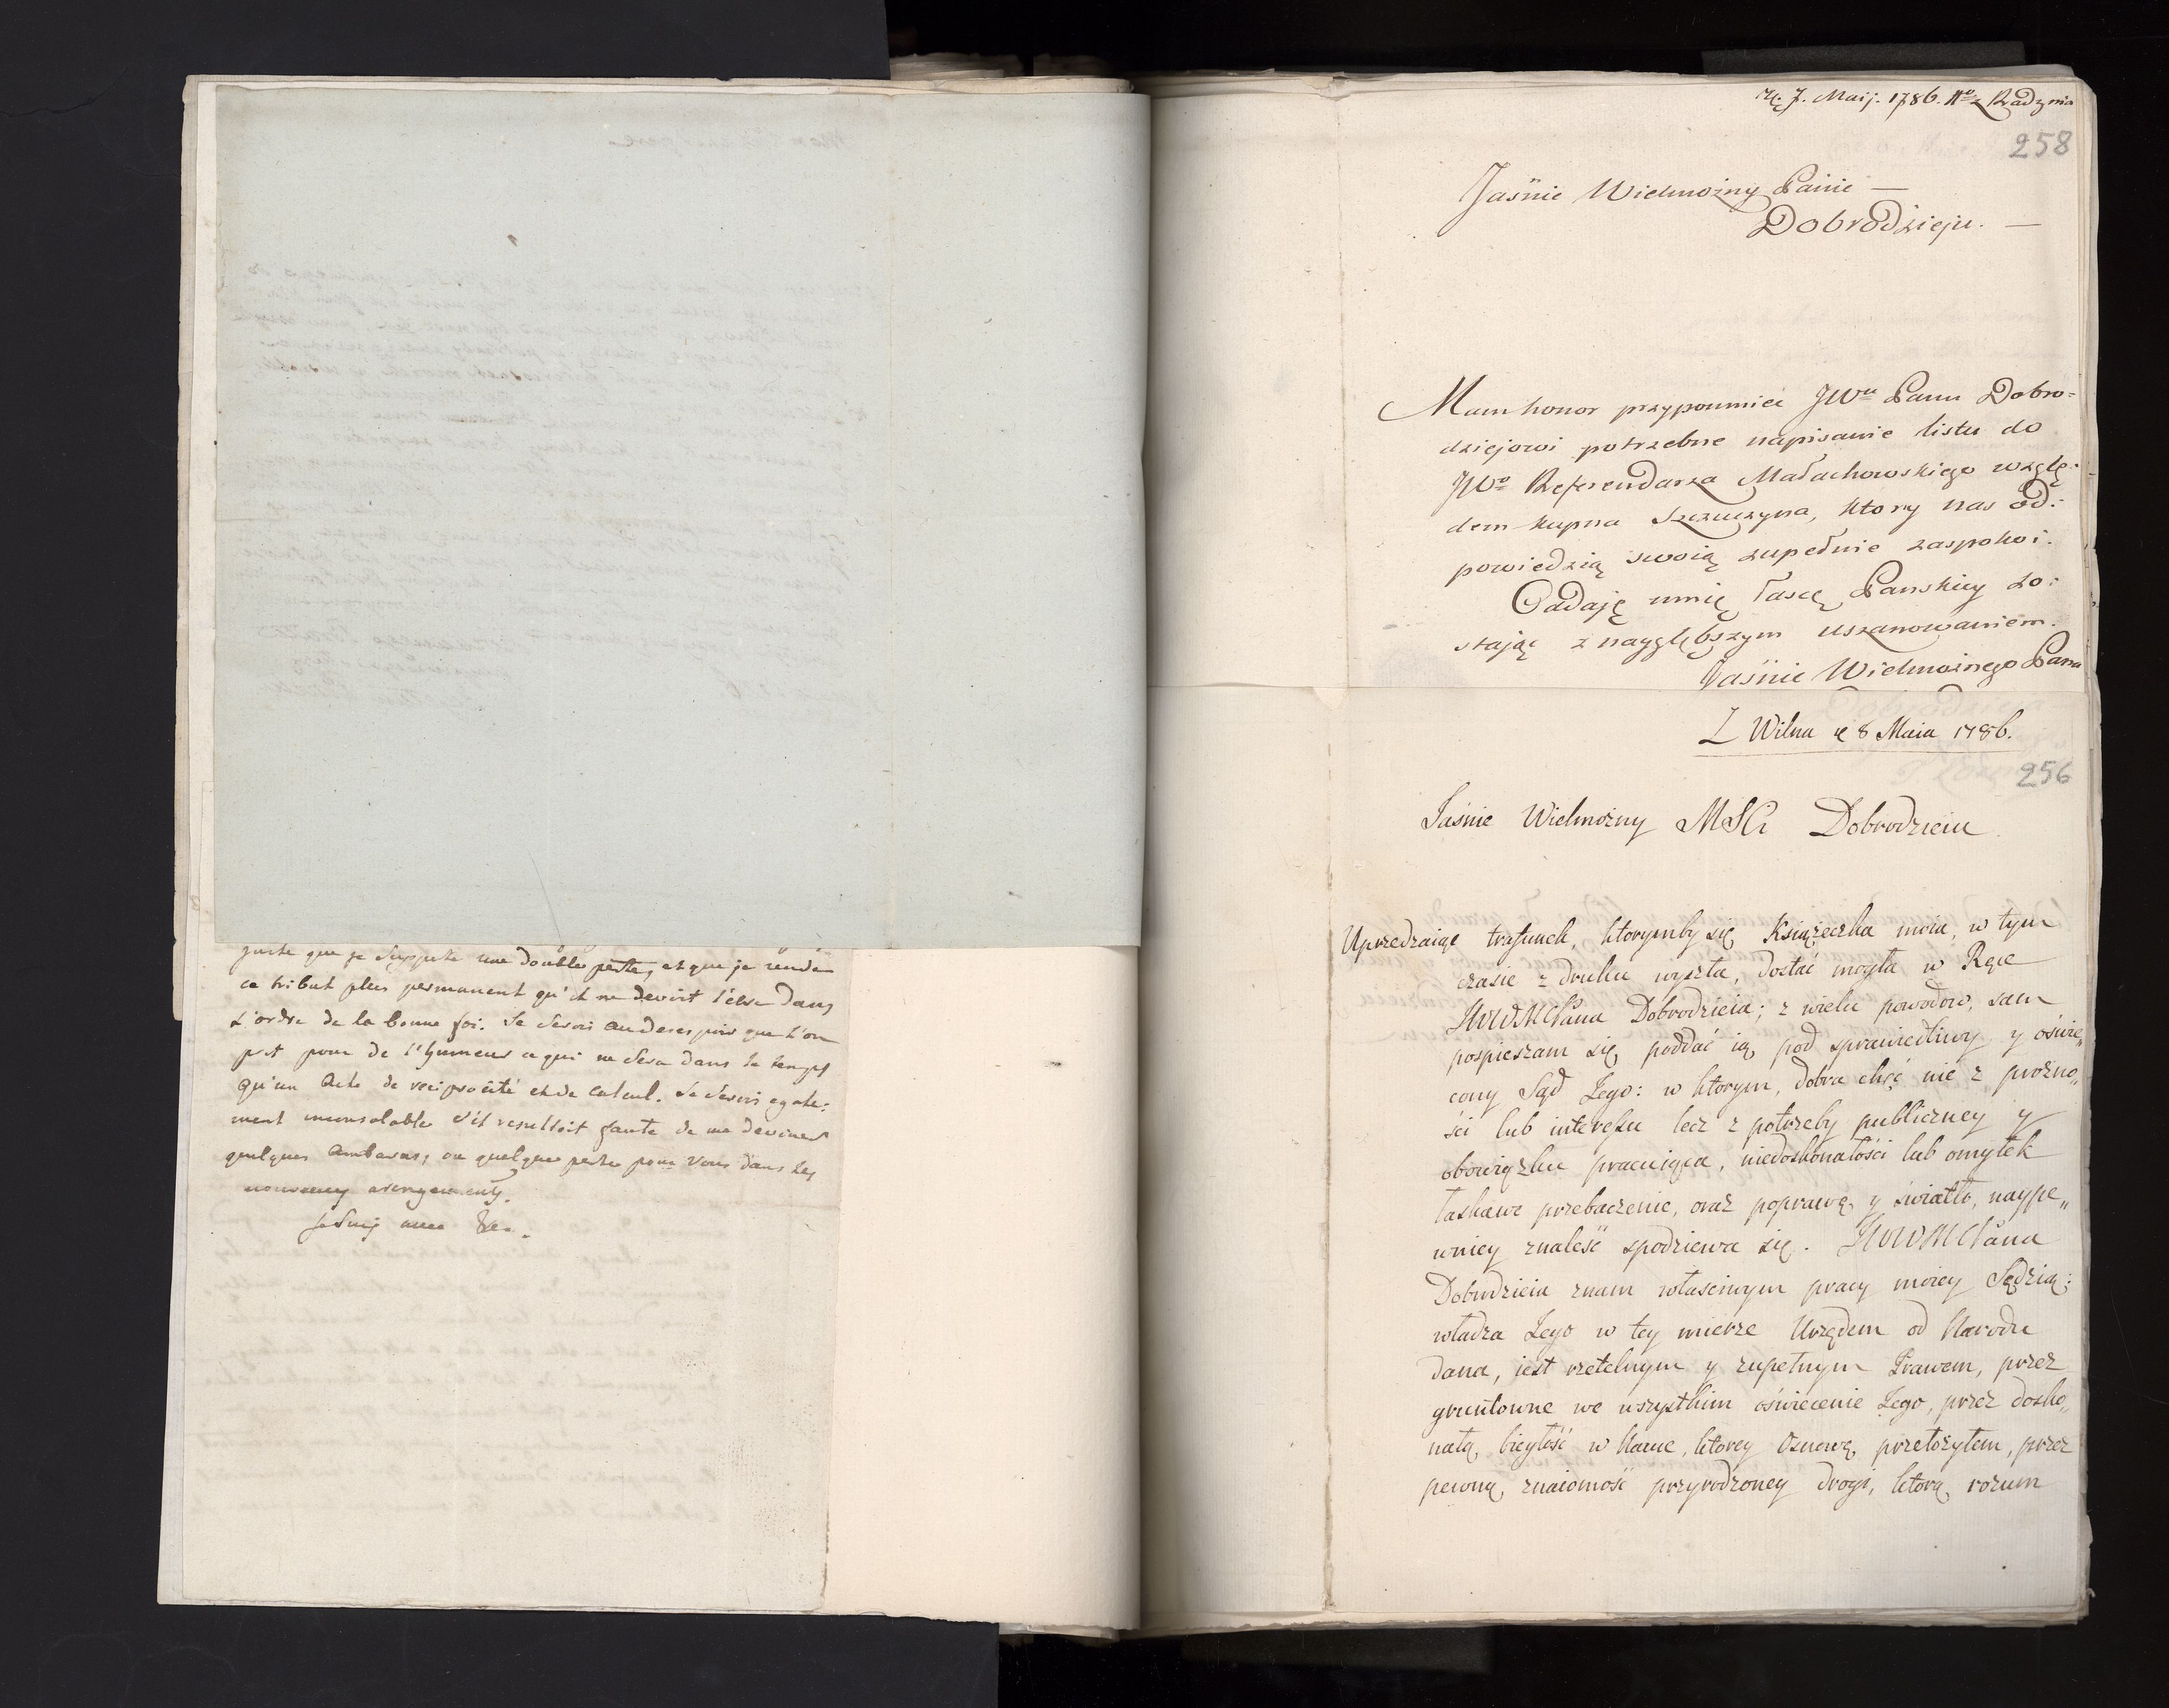 juste que je supporte une double perte, et que je rende
ce tribut plus permanent qu'il ne devoit l'être dans
l'ordre de la bonne foi. Je serois au desespoir que l'on
prit pour de l'humeur ce qui ne sera dans le temps
qu'un Acte de reciprocité et de calcul. Je serois egale:
ment inconsolable s'il resultoit faute de me deviner
quelques Ambaras, ou quelque perte pour Vous dans les
nouveaux arengements.
Je suis avec &c.
7. Maij. 1786. z Radzynia
258
Jaśnie Wielmożny Panie —
Dobrodzieju. —
Mam honor przypomnieć JWu Panu Dobro=
dziejowi potrzebne napisanie listu do
JWo Referendarza Małachowskiego wzglę:
dem kupna Szczuczyna, ktory nas od:
powiedzią swoią zupełnie zaspokoi.
Oddaję mnię łascę Panskiey zo:
stając z nayglębszym uszanowaniem.
Jaśnie Wielmożnego Pana
Z Wilna 8 Maia 1786.
256
Jaśnie Wielmożny Dobrodzieiu
Uprzedzaiąc trafunek, ktorymby się Książeczka moia, w tym
czasie z druku wyszła, dostać mogła w Ręce
JWWMCPana Dobrodzieia; z wielu powodow, sam
pospieszam się poddać ią pod sprawiedliwy y oświe„
cony Sąd Jego: w ktorym, dobra chęć nie z prozno„
ści lub interessu lecz z potrzeby publiczney y
obowiązku pracuiąca, niedoskonałości lub omyłek
łaskawe przebaczenie, oraz poprawę y światło, naype„
wniey znaleść spodziewa się. JWWMCPana
Dobrodzieia znam właściwym pracy moiey Sędzią:
władza Jego w tey mierze Urzędem od Narodu
dana, jest rzetelnym y zupełnym Prawem, przez
gruntowne we wszystkim oświecenie Jego, przez dosko„
nałą biegłość w Nauce, ktorey Osnowę przełożyłem, przez
pewną znaiomość przyrodzoney drogi, ktorą rozum